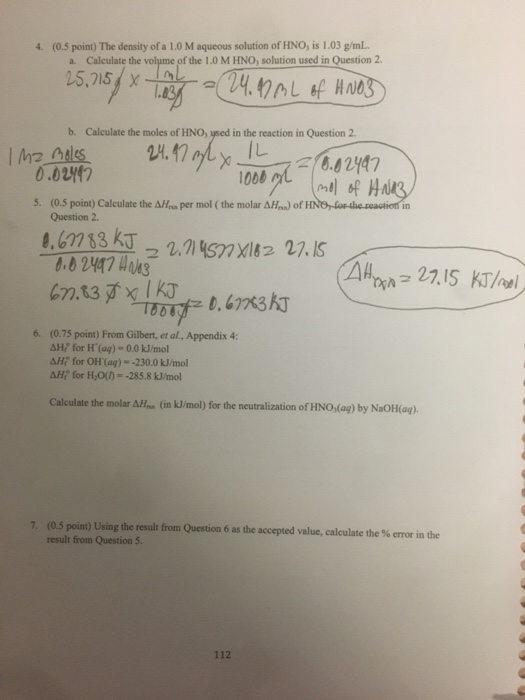 4. (0.5 point) The density of a 1.0 M aqueous solution of HNO₃ is 1.03 g/mL.
a. Calculate the volume of the 1.0 M HNO₃ solution used in Question 2.
25.715g x 1mL / 1.03g = 24.97mL of HNO3
b. Calculate the moles of HNO₃ used in the reaction in Question 2.
1M = moles / 0.02497
24.97 mL x 1L / 1000 mL = 0.02497 mol of HNO3
5. (0.5 point) Calculate the ΔHrxn per mol ( the molar ΔHrxn) of HNO₃ for the reaction in
Question 2.
0.67783 KJ / 0.02497 HNO3 = 2.714577x10= 27.15
ΔHrxn = 27.15 KJ/mol
677.83 J x 1 KJ / 1000J = 0.67783KJ
6. (0.75 point) From Gilbert, et al., Appendix 4:
ΔHf° for H⁺(aq) = 0.0 kJ/mol
ΔHf° for OH⁻(aq) = -230.0 kJ/mol
ΔHf° for H₂O(l) = -285.8 kJ/mol
Calculate the molar ΔHrxn (in kJ/mol) for the neutralization of HNO₃(aq) by NaOH(aq).
7. (0.5 point) Using the result from Question 6 as the accepted value, calculate the % error in the
result from Question 5.
112